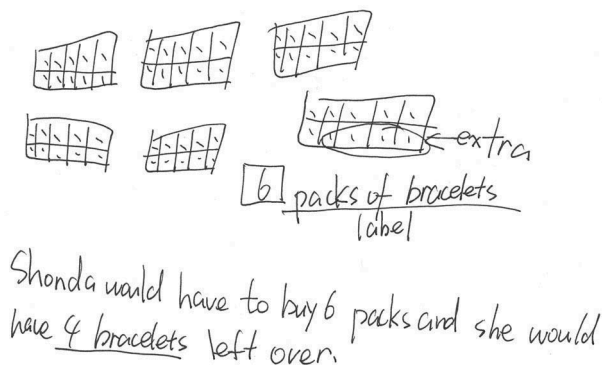 extra
6 packs of bracelets
label
Shonda would have to buy 6 packs and she would
have 4 bracelets left over.